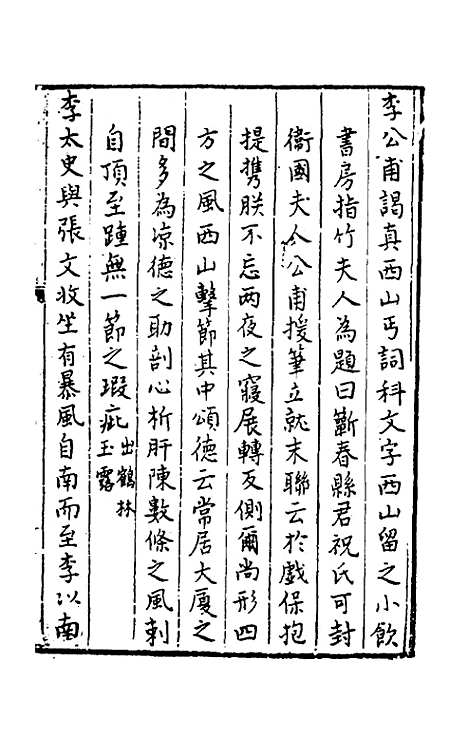 李公甫謁真西山丐詞科文字西山留之小飲
書房指竹夫人為題曰蘄春縣君祝氏可封
衞國夫人公甫援筆立就末聯云於戲保抱
提携朕不忘两夜之寢展轉反側爾尚形四
方之風西山擊節其中頌德云常居大厦之
間多為凉德之助剖心析肝陳數條之風刺
自頂至踵無一節之瑕疵出鶴林玉露
李太史與張文收坐有暴風自南而至李以南